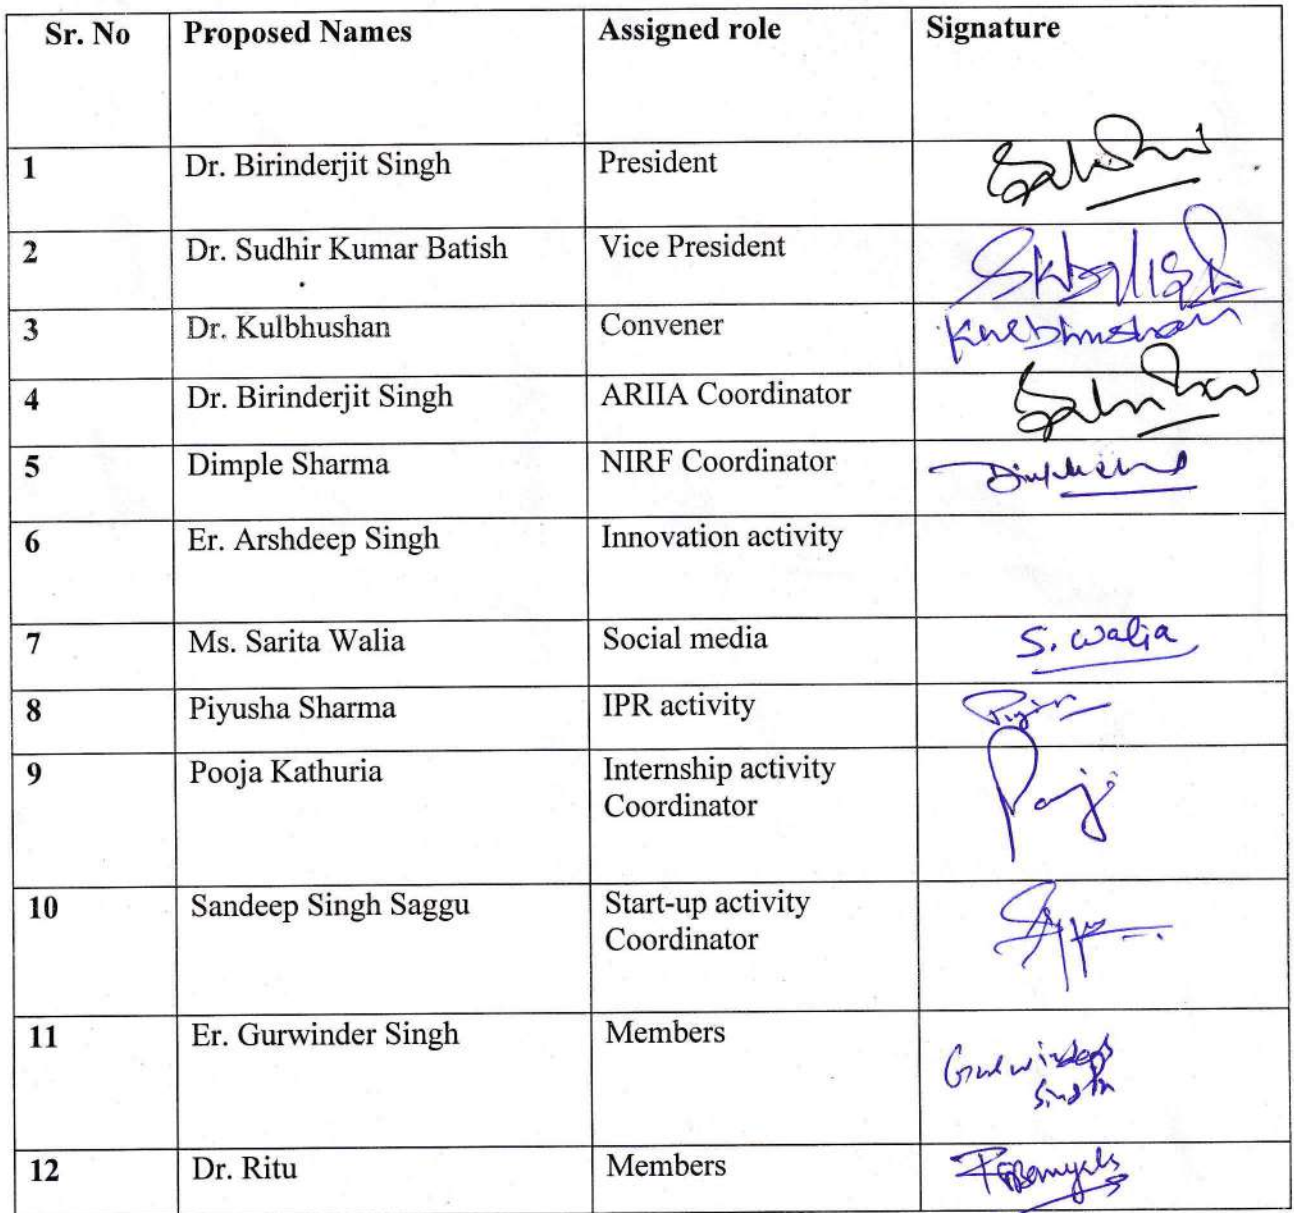 Sr. No Proposed Names Assigned role Signature
1 Dr. Birinderjit Singh President
2 Dr. Sudhir Kumar Batish Vice President SKBatish
3 Dr. Kulbhushan Convener Kulbhushan
4 Dr. Birinderjit Singh ARIIA Coordinator
5 Dimple Sharma NIRF Coordinator
6 Er. Arshdeep Singh Innovation activity
7 Ms. Sarita Walia Social media S. Walia
8 Piyusha Sharma IPR activity
9 Pooja Kathuria Internship activity
Coordinator
10 Sandeep Singh Saggu Start-up activity
Coordinator
11 Er. Gurwinder Singh Members Gurwinder
Singh
12 Dr. Ritu Members